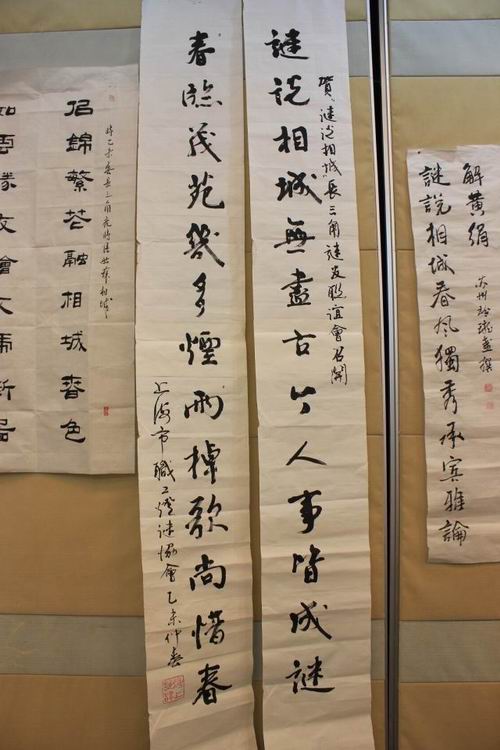 解黄绢
謎説相城春风獨秀承宾雅論
賀謎说相城長三角謎友聯誼會召開
謎说相城無盡古今人事皆成謎
春臨茂苑幾多煙雨棹歌尚惜春
上海市職工燈謎協會乙未仲春
佀錦繁花融相城春色